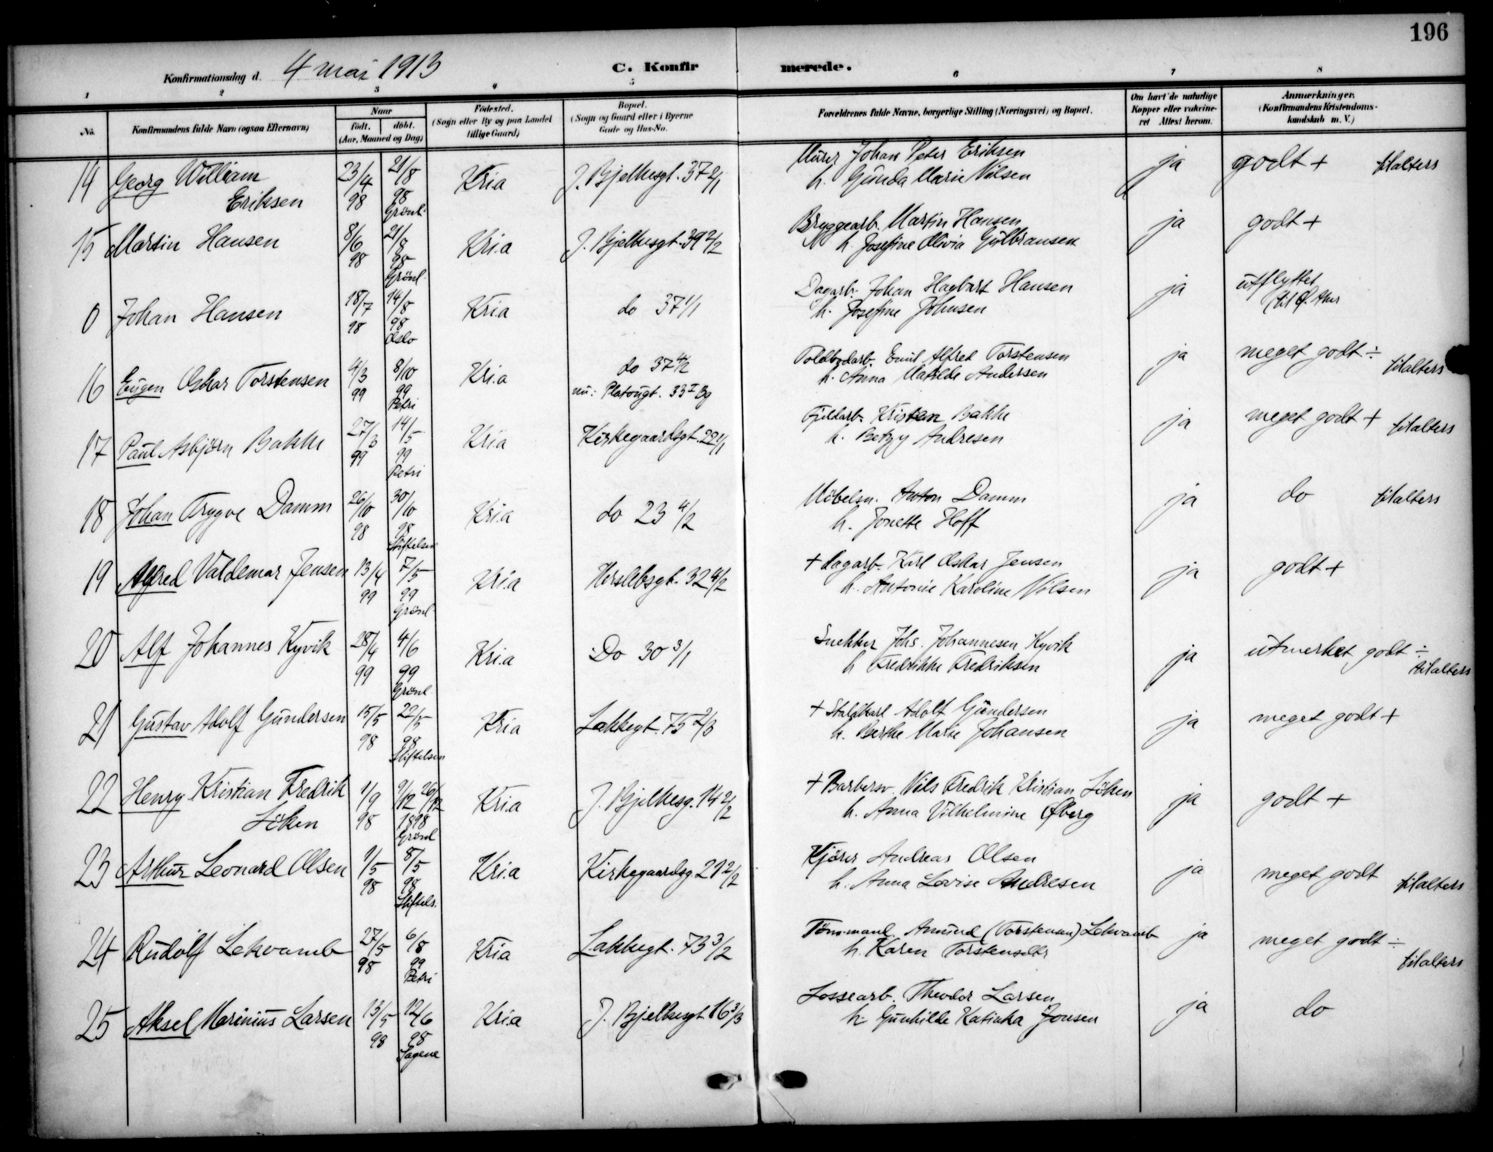 196
Konfirmationsdag d. 4 mai 1913 C. Konfirmerede.
1 2 3 4 5 6 7 8
No. Konfirmandens fulde Navn (ogsaa Efternavn) Naar født, døbt. (Aar, Maaned og Dag) Fødested. (Sogn eller By og paa Landet tillige Gaard) Bopæl. (Sogn og Gaard eller i Byerne Gade og Hus-No. Forældrenes fulde Navne, borgerlige Stilling (Næringsvei) og Bopæl. Om havt de naturlige Kopper eller vakcineret Attest herom. Anmærkninger. (Konfirmandens Kristendomskundskab m. V.)
14 Georg William Eriksen 23/4 98 21/8 98 Grønl. Kria J. Bjelkesgt. 37 2/1 Murer Johan Peter Eriksen
h. Gunda Marie Nilsen ja godt + tilalters
15 Martin Hansen 8/6 98 21/8 98 Grønl Kria J. Bjelkesgt 39 2/2 Bryggearb. Martin Hansen
h. Josefine Olivia Gulbransen ja godt +
0 Johan Hansen 18/7 98 14/8 98 Oslo Kria do 37 1/1 Dagarb. Johan Hagbart Hansen
h. Josefine Johnsen ja utflyttet
16 Eugen Oskar Torstensen 4/3 99 8/10 99 Petri Kria do 37 4/2
nu: Platougt. 33 II Emil Alfred Torstensen
h. Anna Matilde Andersen ja meget godt ÷ tilalters
17 Paul Asbjørn Bakke 27/3 99 14/5 99 Petri Kria Kirkegaardsgt 22 1/1 Kristian Bakke
h. Betzy Andresen ja meget godt + tilalters
18 Johan Trygve Damm 26/10 98 30/10 98 Stiftelsen Kria do 23 4/2 Møbelsn. Anton Damm
h. Jonette Hoff ja do tilalters
19 Alfred Valdemar Jensen 13/4 99 7/5 99 Grønl Kria Herslebsgt. 32 4/2 + dagarb. Karl Oskar Jensen
h. Antonie Karoline Nilsen ja godt +
20 Alf Johannes Kyvik 28/4 99 4/6 99 Grønl Kria Do 30 3/1 Snekker Johs. Johannesen Kyvik
h Fredrikke Fredriksen ja utmerket godt ÷ tilalters
21 Gustav Adolf Gundersen 15/5 98 22/5 98 Stiftelsen Kria Lakkegt 75 2/3 + Adolf Gundersen
h. Berthe Marie Johansen ja meget godt +
22 Henry Kristian Fredrik Løken 1/9 98 9/12 26/12 1898 Grønl Kria J. Bjelkesg. 14 2/2 + Barbersv. Nils Fredrik Kristian Löken
h. Anna Vilhelmine Øberg ja godt +
23 Arthur Leonard Olsen 1/5 98 8/5 98 Stiftels. Kria Kirkegaardsg 21 2/2 Kjører Andreas Olsen
h. Anna Lovise Andresen ja meget godt tilalters
24 Rudolf Lekvamb 27/5 98 6/8 99 Petri Kria Lakkegt. 73 3/2 Tømmand. Amund (Torstensen) Lekvamb
h. Karen Torstensdtr ja meget godt ÷ tilalters
25 Aksel Marinius Larsen 13/5 98 12/6 98 Sagene Kria J. Bjelkesgt 16 3/3 Lossearb. Theodor Larsen
h Gunhilde Katinka Jonsen ja do